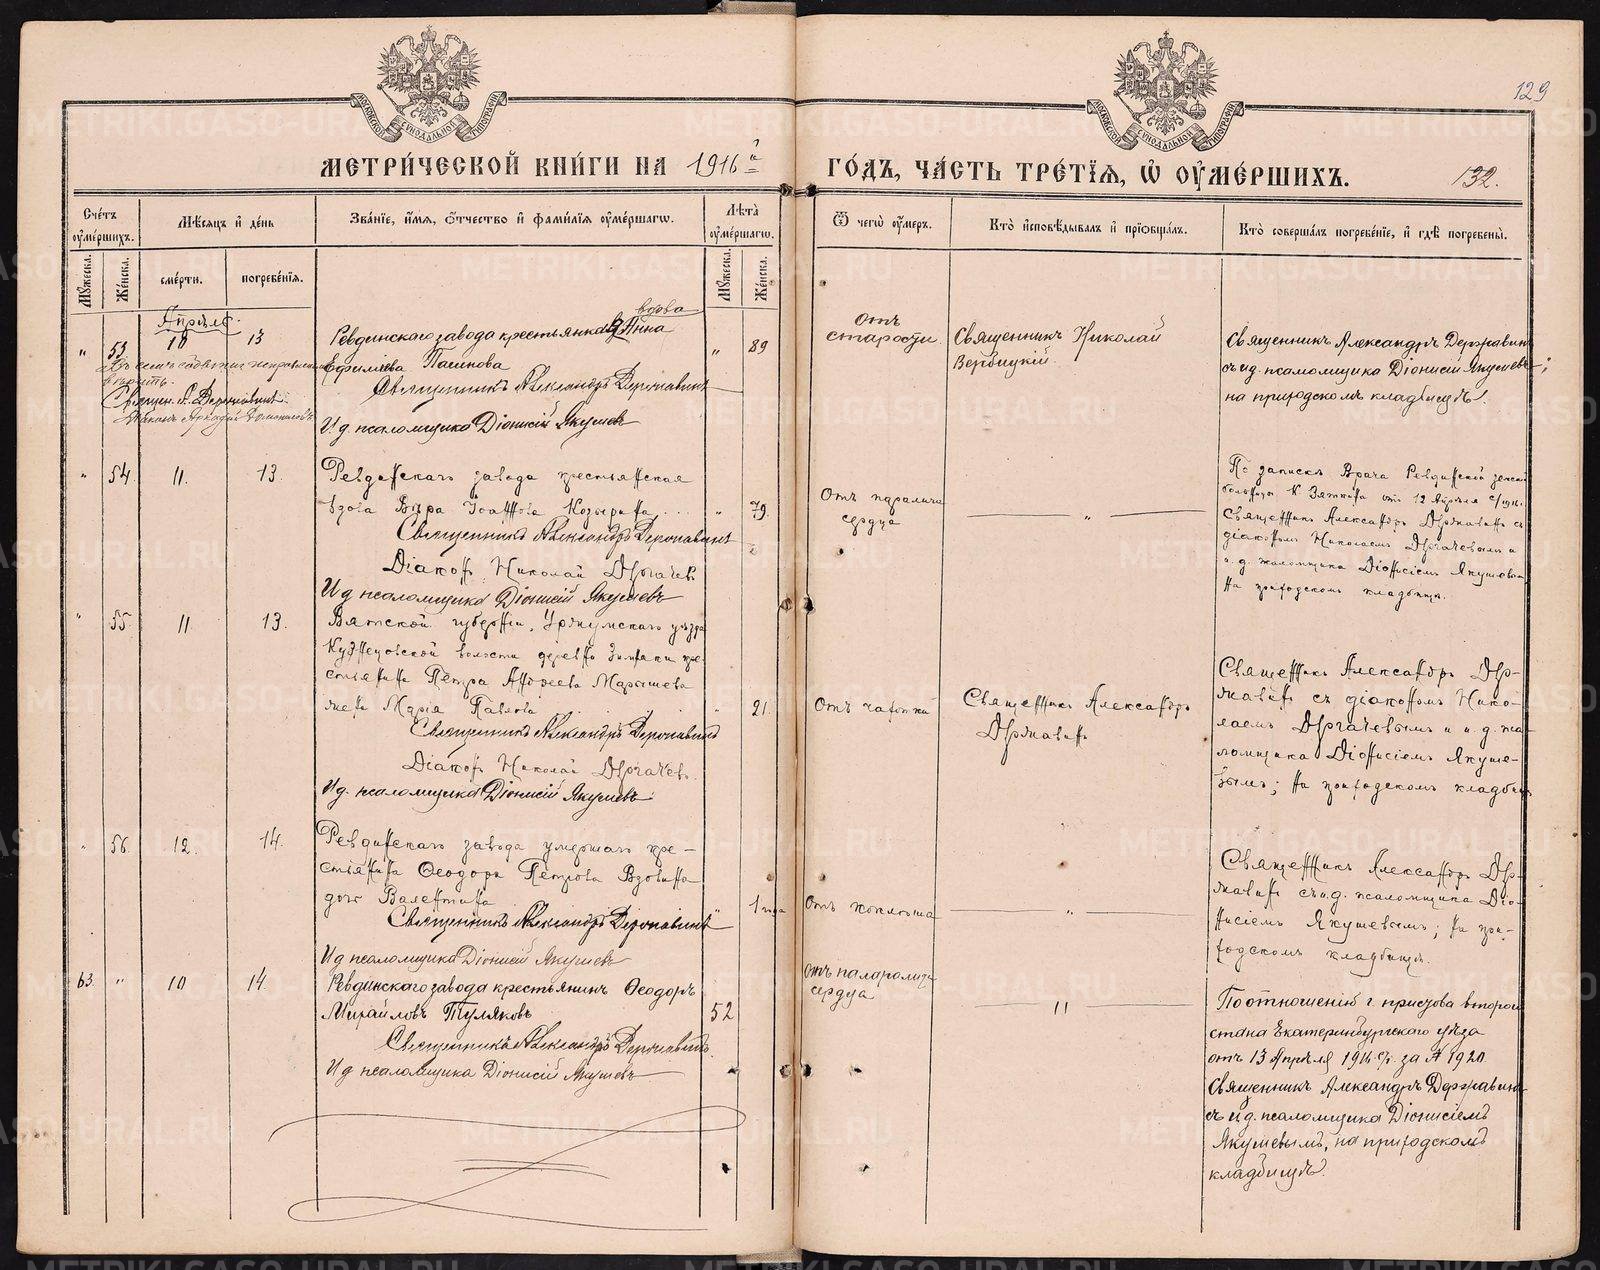 129
МЕТРИ́ЧЕСКОЙ КНИ́ГИ НА 1916 й
ГО́ДЪ, ЧА́СТЬ ТРЕ́ТЇѦ, Ѡ҆ ОУ҆МЕ́РШИХЪ.
132.
Сче́тъ оу҆ме́ршихъ.
Мѣ́сѧцъ и҆ де́нь
Зва́нїе, и҆́мѧ, ѻ҆́тчество и҆ фами́лїѧ оу҆ме́ршагѡ.
Лѣ́та оу҆ме́ршагѡ.
Ѿ чегѡ̀ оу҆́меръ.
Кто̀ и҆сповѣ́дывалъ и҆ прїѡбща́лъ.
Кто̀ соверша́лъ погребе́нїе, и҆ гдѣ̀ погребены̀.
Мꙋ́жеска.
Же́нска.
сме́рти.
погребе́нїѧ.
Мꙋ́жеска.
Же́нска.
Апрѣль.
" 53 10 13
Ревдинскаго завода крестьянка вдова Анна
Ефимиева
Священникъ Александръ Державинъ
И д. псаломщика Діонисій Якушевъ
Священ. А. Державинъ.
" 89
отъ
старости.
Священникъ Николай
Вербицкій.
Священникъ Александръ Державинъ
съ и д. псаломщика Діонисій Якушевъ;
на приходскомъ кладбищѣ.
" 54. 11. 13.
Ревдинскаго завода крестьянская
вдова Вѣра Іоаннова Козырина
Священникъ Александръ Державинъ
Діаконъ Николай Дергачевъ
И д псаломщика Діонисій Якушевъ
" 79.
Отъ паралича
сердца
"
По запискѣ Врача Ревдинской земской
больницы отъ 12 Апрѣля с/г 1916.
Священникъ Александръ Державинъ съ
діакономъ Николаемъ Дергачевымъ и
и. д. псаломщика Діонисіемъ Якушевымъ
На приходскомъ кладбищѣ.
" 55. 11. 13.
Вятской губерніи, Уржумскаго уѣзда
Кузнецовской волости деревни кре-
стьянина Петра Андреева Марышева
жена Марія Павлова
Священникъ Александръ Державинъ
Діаконъ Николай Дергачевъ.
И д. псаломщика Діонисій Якушевъ
21.
Отъ чахотки
Священникъ Александръ
Державинъ
Священникъ Александръ Дер-
жавинъ съ діакономъ Нико-
лаемъ Дергачевымъ и и. д. пса-
ломщика Діонисіемъ Якуше-
вымъ; На приходскомъ кладбищѣ
" 56. 12. 14.
Ревдинскаго завода умершаго кре-
стьянина Ѳеодора Петрова Вдовина
дочь Валентина
Священникъ Александръ Державинъ
И д псаломщика Діонисій Якушевъ
" 1 года
Отъ коклюша
"
Священникъ Александръ Дер-
жавинъ съ и д. псаломщика Діо-
нисіемъ Якушевымъ; На при-
ходскомъ кладбищѣ.
63. " 10 14.
Ревдинскаго завода крестьянинъ Ѳеодоръ
Михайловъ Туляковъ
Священникъ Александръ Державинъ
И д псаломщика Діонисій Якушевъ
52
отъ паларализа
сердца
"
По отношенію г. пристава второго
стана Екатеринбургскаго уѣзда
отъ 13 Апрѣля 1916 г. за № 1920
Священникъ Александръ Державинъ
съ и д. псаломщика Діонисіемъ
Якушевымъ, на приходскомъ
кладбищѣ.